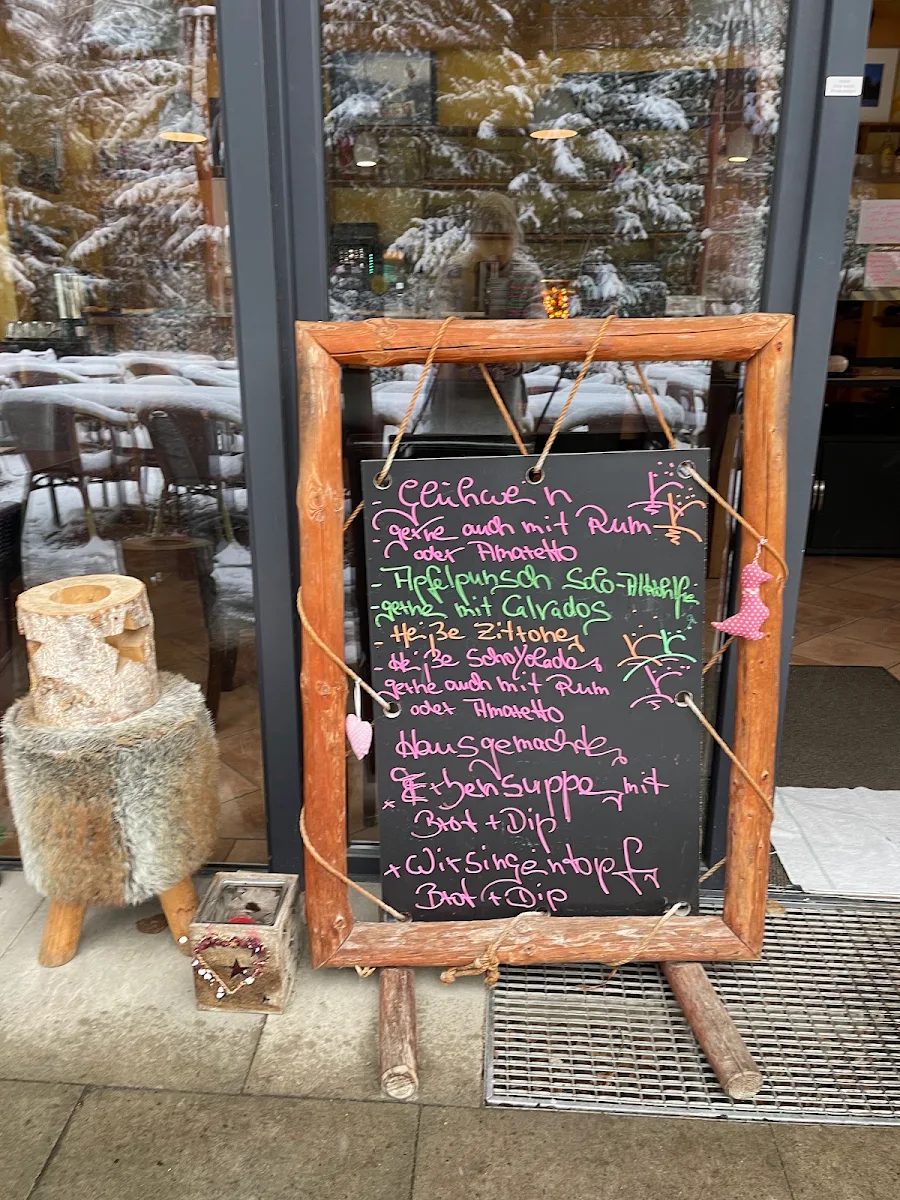 Glühwein
gerne auch mit Rum
oder Amaretto
- Apfelpunsch
gerne mit Calvados
- Heiße Zitrone
- Heiße Schokolade
gerne auch mit Rum
oder Amaretto
Hausgemachte
* Erbensuppe mit
Brot + Dip
+ Wirsingeintopf
Brot + Dip